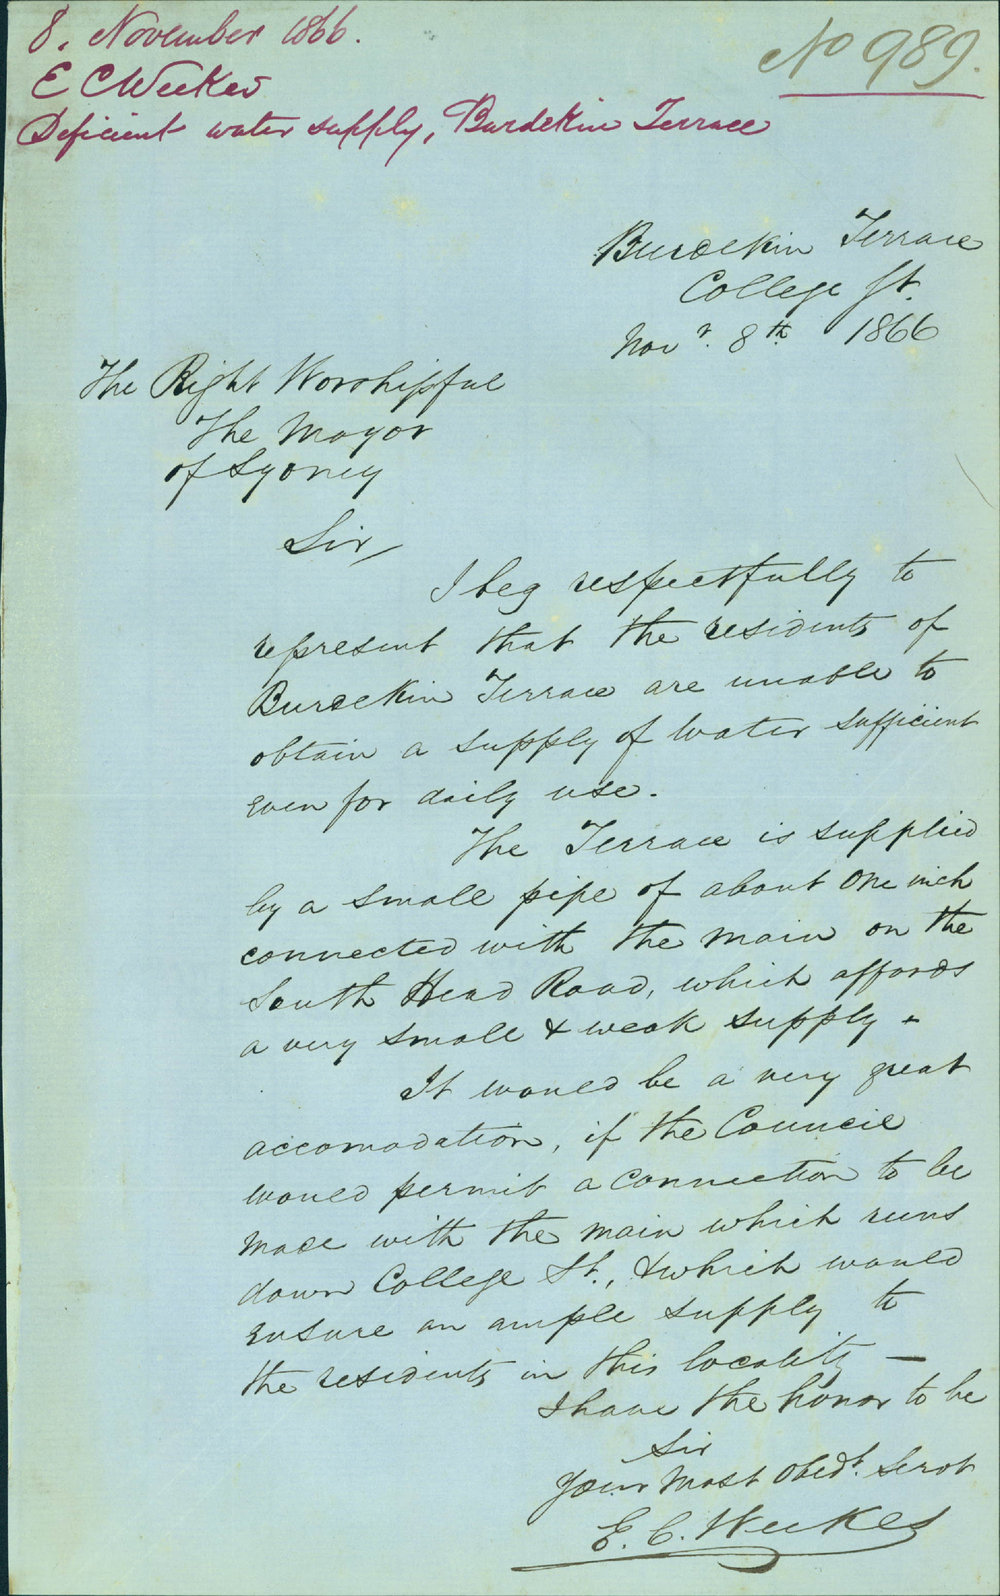 8. November 1866.
E C Weekes
Deficient water supply, Burdekin Terrace
No 989.
Burdekin Terrace
College St.
Novr. 8th. 1866
The Right Worshipful
The Mayor
of Sydney
Sir,
I beg respectfully to
represent that the residents of
Burdekin Terrace are unable to
obtain a supply of water sufficient
even for daily use.
The Terrace is supplied
by a small pipe of about one inch
connected with the main on the
South Head Road, which affords
a very small & weak supply -
It would be a very great
accomodation, if the Council
would permit a connection to be
made with the main which runs
down College St., & which would
ensure an ample supply to
the residents in this locality —
I have the honor to be
Sir
Your Most Obedt. Servt
E. C. Weekes